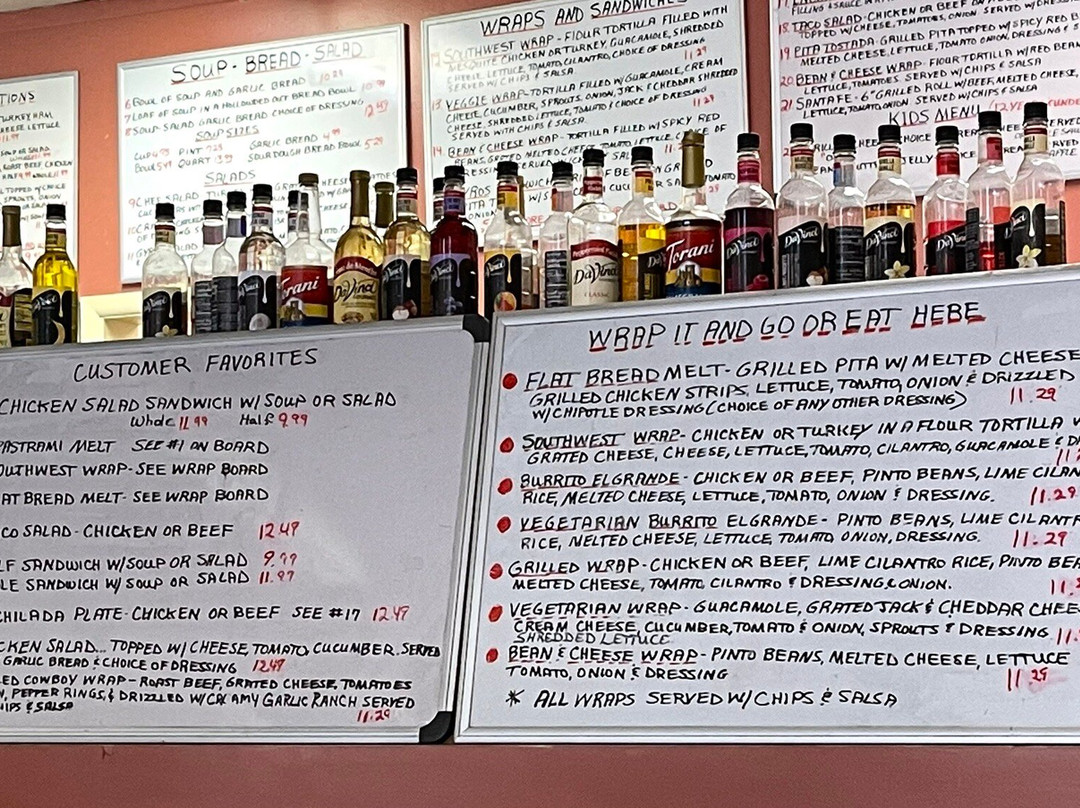 TIONS
TURKEY HAM
CHEESE LETTUCE
11.99
SOUP OR SALAD
ROAST BEEF CHICKEN
SOUP - BREAD - SALAD
6 BOWL OF SOUP AND GARLIC BREAD 10.29
7 LOAF OF SOUP IN A HOLLOWED OUT BREAD BOWL 10.99
8 SOUP-SALAD GARLIC BREAD CHOICE OF DRESSING 12.49
SOUP SIZES
CUP PINT GARLIC BREAD
BOWL QUART SOURDOUGH BREAD BOWL 5.29
SALADS
WRAPS AND SANDWICHES
SOUTHWEST WRAP - FLOUR TORTILLA FILLED WITH
MESQUITE CHICKEN OR TURKEY, GUACAMOLE, SHREDDED
CHEESE, LETTUCE, TOMATO, CILANTRO, CHOICE OF DRESSING
SERVED W/ CHIPS & SALSA 11.29
13. VEGGIE WRAP - TORTILLA FILLED W/ GUACAMOLE, CREAM
CHEESE, CUCUMBER, SPROUTS, ONION, JACK & CHEDDAR SHREDDED
CHEESE, SHREDDED LETTUCE, TOMATO & CHOICE OF DRESSING
SERVED WITH CHIPS & SALSA. 11.29
14. BEAN & CHEESE WRAP - TORTILLA FILLED W/ SPICY RED
18. TACO SALAD - CHICKEN OR BEEF ON
TOPPED W/ CHEESE, TOMATOES, ONION SERVED W/
19 PITA TOSTADA - GRILLED PITA TOPPED W/ SPICY RED
MELTED CHEESE, LETTUCE, TOMATO ONION, DRESSING &
20 BEAN & CHEESE WRAP - FLOUR TORTILLA W/ RED BEANS
LETTUCE, TOMATOES SERVED W/ CHIPS & SALSA
21 SANTA FE - 6" GRILLED ROLL W/ BEEF, MELTED CHEESE,
LETTUCE, TOMATO, ONION SERVED W/ CHIPS & SALSA
KIDS MENU
DaVinci
Torani
DaVinci
DaVinci
DaVinci
Torani
DaVinci
DaVinci
DaVinci
DaVinci
DaVinci
CUSTOMER FAVORITES
CHICKEN SALAD SANDWICH W/ SOUP OR SALAD
Whole 11.99 Half 9.99
PASTRAMI MELT SEE #1 ON BOARD
OUTHWEST WRAP - SEE WRAP BOARD
AT BREAD MELT - SEE WRAP BOARD
CO SALAD - CHICKEN OR BEEF 12.49
LF SANDWICH W/ SOUP OR SALAD 9.99
LE SANDWICH W/ SOUP OR SALAD 11.99
CHILADA PLATE - CHICKEN OR BEEF SEE #17 12.49
CKEN SALAD... TOPPED W/ CHEESE, TOMATO, CUCUMBER. SERVED
GARLIC BREAD & CHOICE OF DRESSING 12.49
LED COWBOY WRAP - ROAST BEEF, GRATED CHEESE, TOMATOES
, PEPPER RINGS, & DRIZZLED W/ CREAMY GARLIC RANCH SERVED
HIPS & SALSA 11.29
WRAP IT AND GO OR EAT HERE
FLAT BREAD MELT - GRILLED PITA W/ MELTED CHEESE
GRILLED CHICKEN STRIPS, LETTUCE, TOMATO, ONION & DRIZZLED
W/ CHIPOTLE DRESSING (CHOICE OF ANY OTHER DRESSING) 11.29
SOUTHWEST WRAP - CHICKEN OR TURKEY IN A FLOUR TORTILLA W
GRATED CHEESE, CHEESE, LETTUCE, TOMATO, CILANTRO, GUACAMOLE & D
BURRITO ELGRANDE - CHICKEN OR BEEF, PINTO BEANS, LIME CILAN
RICE, MELTED CHEESE, LETTUCE, TOMATO, ONION & DRESSING. 11.29
VEGETARIAN BURRITO ELGRANDE - PINTO BEANS, LIME CILANTR
RICE, MELTED CHEESE, LETTUCE, TOMATO ONION, DRESSING. 11.29
GRILLED WRAP - CHICKEN OR BEEF, LIME CILANTRO RICE, PINTO BEA
MELTED CHEESE, TOMATO CILANTRO & DRESSING & ONION. 11.
VEGETARIAN WRAP - GUACAMOLE, GRATED JACK & CHEDDAR CHEE
CREAM CHEESE, CUCUMBER, TOMATO & ONION, SPROUTS & DRESSING 11.
SHREDDED LETTUCE
BEAN & CHEESE WRAP - PINTO BEANS, MELTED CHEESE, LETTUCE
TOMATO, ONION & DRESSING 11.29
* ALL WRAPS SERVED W/ CHIPS & SALSA